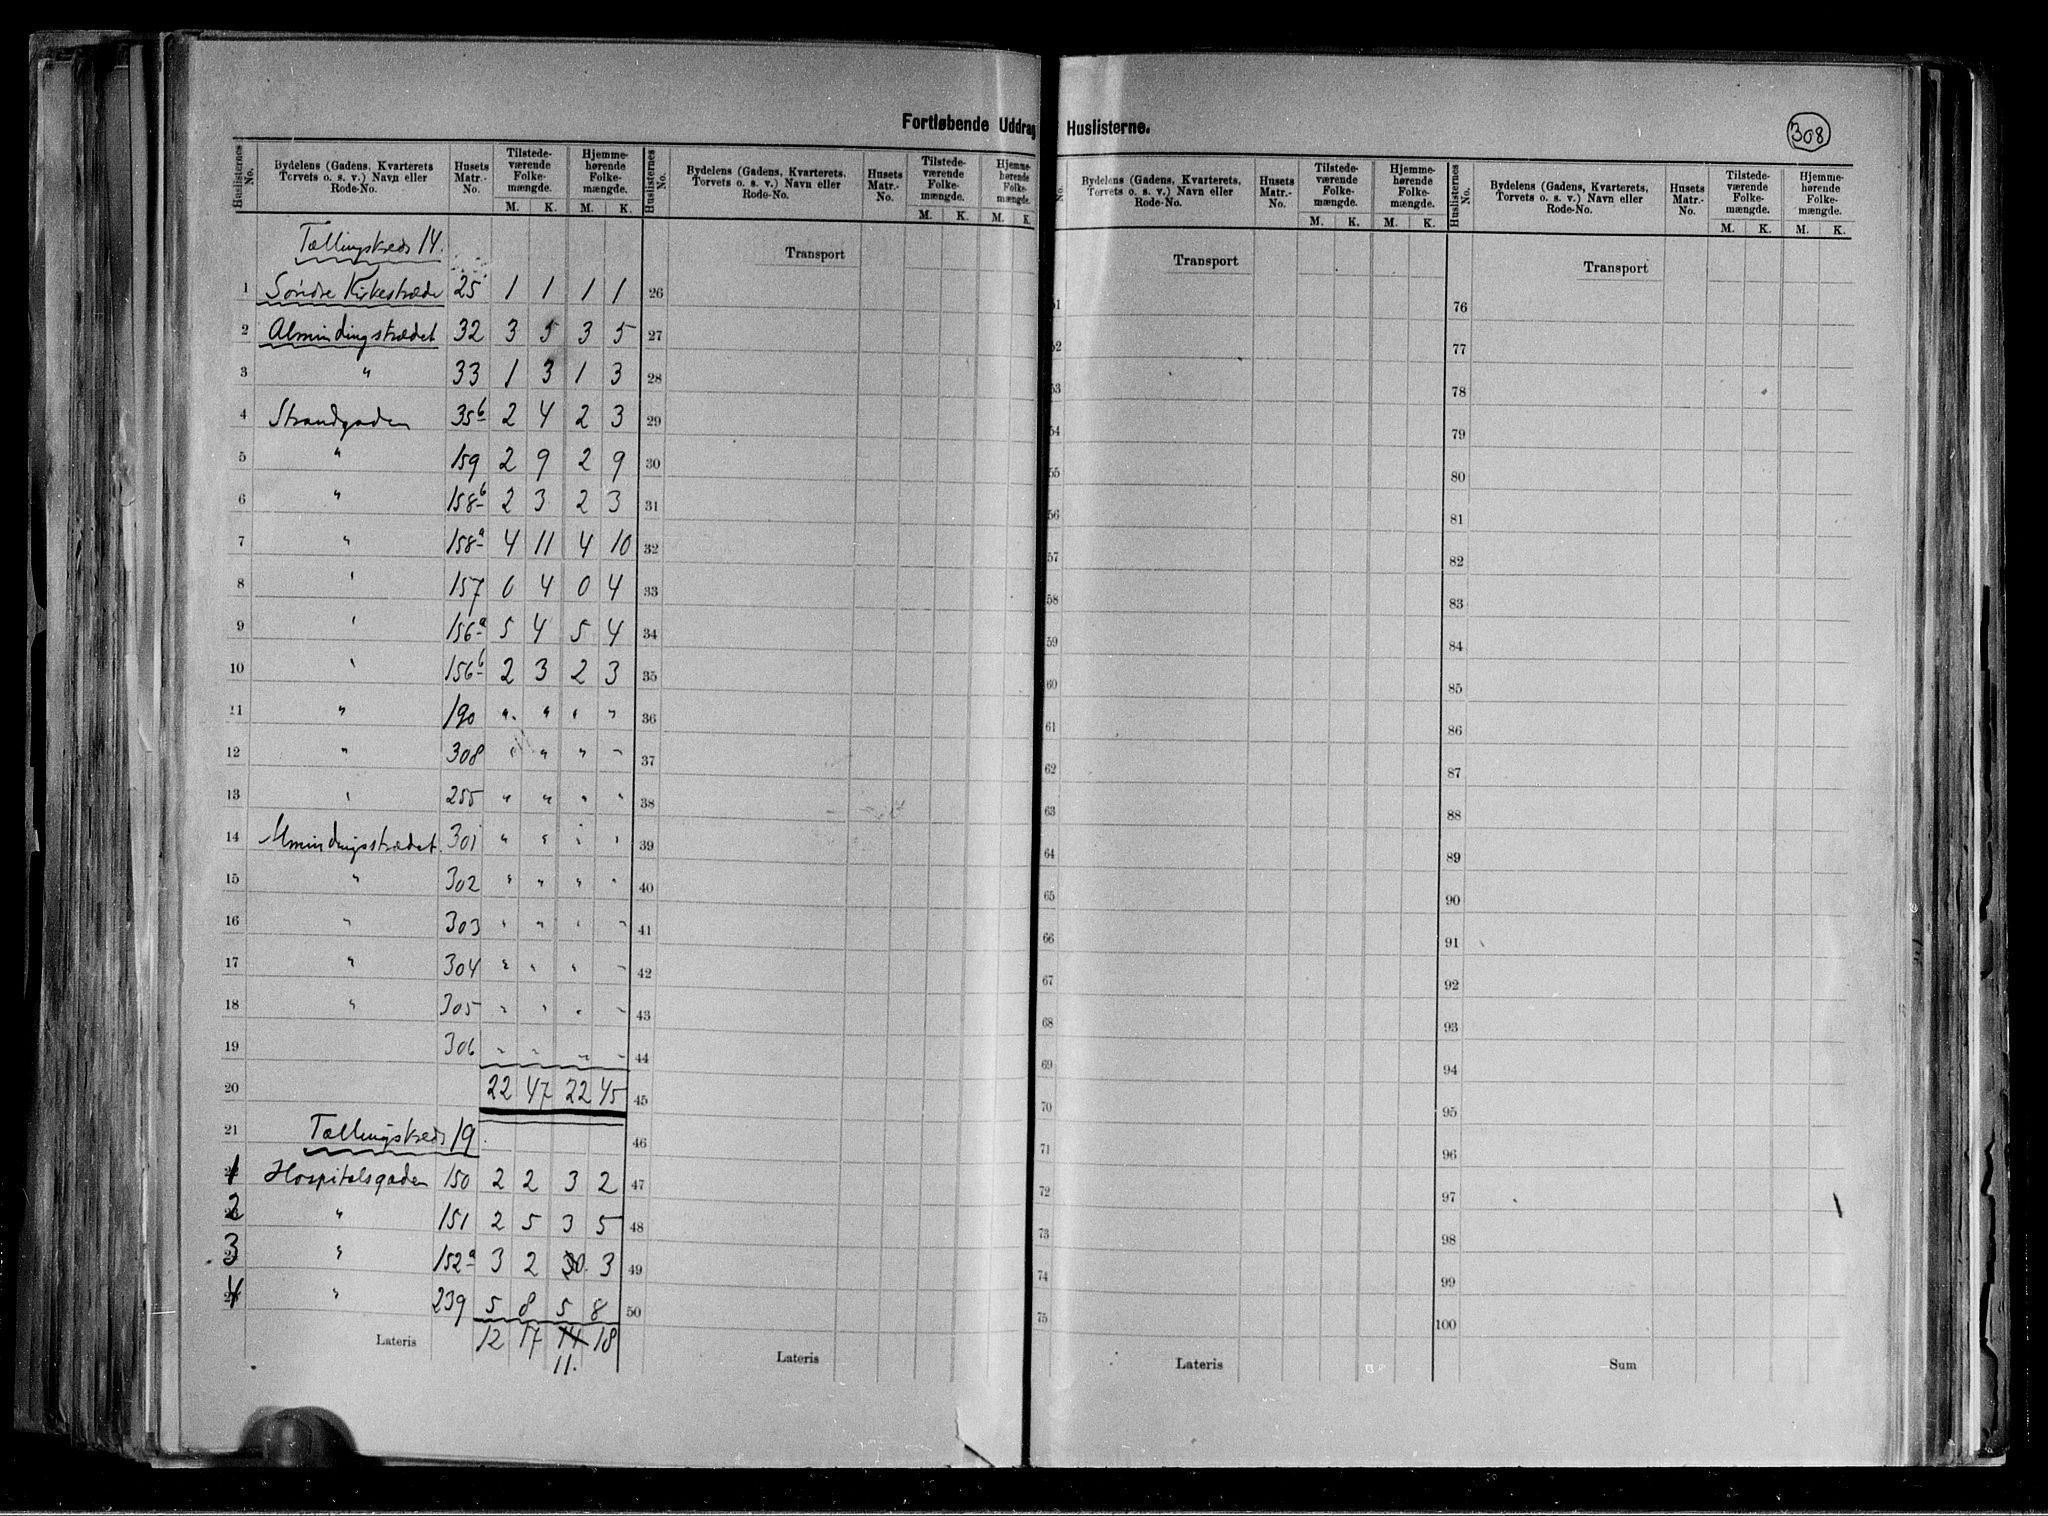 Fortløbende Uddrag Huslisterne.
308
Huslisternes No. | Bydelens (Gadens, Kvarterets Torvets o. s. v.) Navn eller Rode-No. | Husets Matr.-No. | Tilstedeværende Folkemængde. M. K. | Hjemmehørende Folkemængde. M. K.
Tællingskreds 14.
1 Søndre Kirkestræde 25 1 1 1 1
2 Almindingstrædet 32 3 5 3 5
3 " 33 1 3 1 3
4 Strandgaden 35b 2 4 2 3
5 " 159 2 9 2 9
6 " 158b 2 3 2 3
7 " 158a 4 11 4 10
8 " 157 0 4 0 4
9 " 156a 5 4 5 4
10 " 156b 2 3 2 3
11 " 190 " " " "
12 " 308 " " " "
13 " 255 " " " "
14 Almindingsstrædet 301 " " " "
15 " 302 " " " "
16 " 303 " " " "
17 " 304 " " " "
18 " 305 " " " "
19 306 " " " "
20 22 47 22 45
21 Tællingskreds 19.
1 Hospitalsgaden 150 2 2 3 2
2 " 151 2 5 3 5
3 " 152a 3 2 0. 3
4 " 239 5 8 5 8
Lateris 12 17 14 18
11.
Huslisternes No. | Bydelens (Gadens, Kvarterets, Torvets o. s. v.) Navn eller Rode-No. | Husets Matr.-No. | Tilstedeværende Folkemængde. M. K. | Hjemmehørende Folkemængde. M. K.
Transport
26
27
28
29
30
31
32
33
34
35
36
37
38
39
40
41
42
43
44
45
46
47
48
49
50
Lateris
No. | Bydelens (Gadens, Kvarterets, Torvets o. s. v.) Navn eller Rode-No. | Husets Matr.-No. | Tilstedeværende Folkemængde. M. K. | Hjemmehørende Folkemængde. M. K.
Transport
51
52
53
54
55
56
57
58
59
60
61
62
63
64
65
66
67
68
69
70
71
72
73
74
75
Lateris
Huslisternes No. | Bydelens (Gadens, Kvarterets, Torvets o. s. v.) Navn eller Rode-No. | Husets Matr.-No. | Tilstedeværende Folkemængde. M. K. | Hjemmehørende Folkemængde. M. K.
Transport
76
77
78
79
80
81
82
83
84
85
86
87
88
89
90
91
92
93
94
95
96
97
98
99
100
Sum